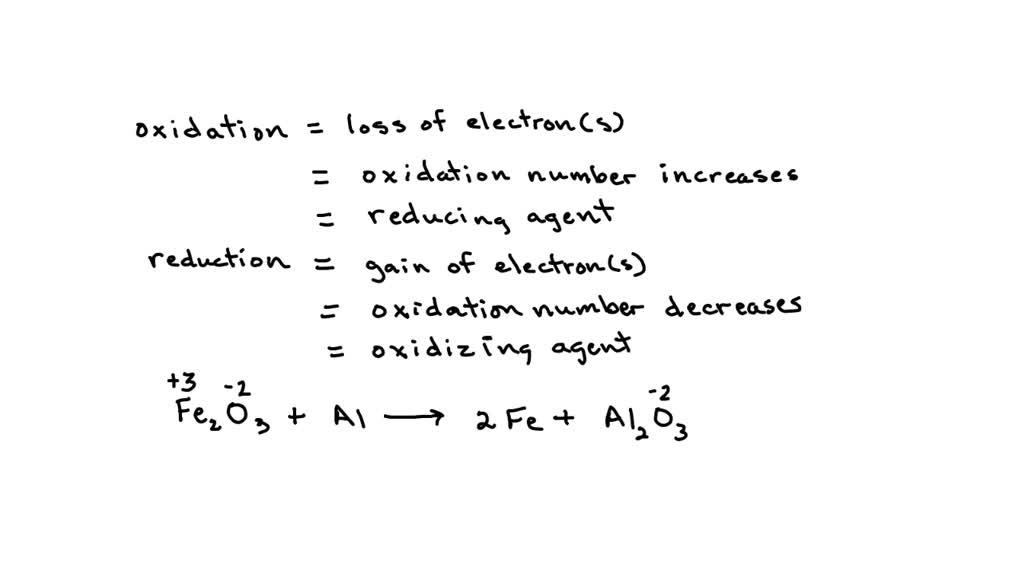 oxidation = loss of electron(s)
= oxidation number increases
= reducing agent
reduction = gain of electron(s)
= oxidation number decreases
= oxidizing agent
+3 -2 -2
Fe₂O₃ + Al ⟶ 2 Fe + Al₂O₃